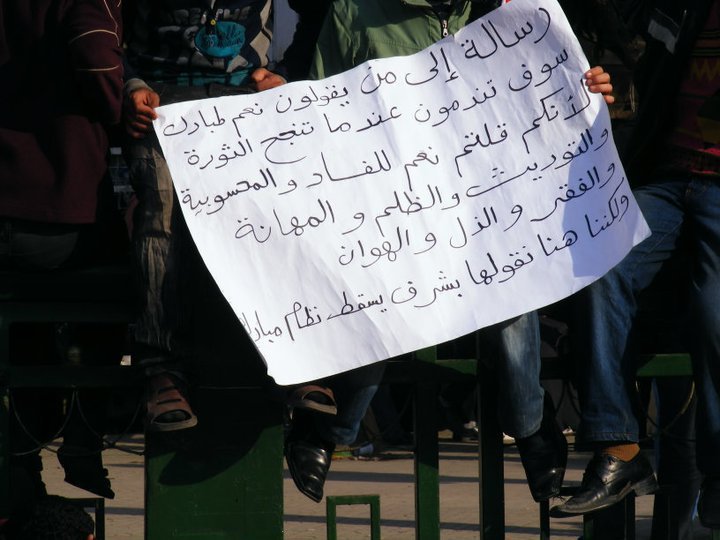 رسالة إلى من يقولون نعم لمبارك
سوف تندمون عندما تنجح الثورة
لأنكم قلتم نعم للفساد و المحسوبية
و التوريث و الظلم و المهانة
و الفقر و الذل و الهوان
ولكننا هنا نقولها بشرف يسقط نظام مبارك